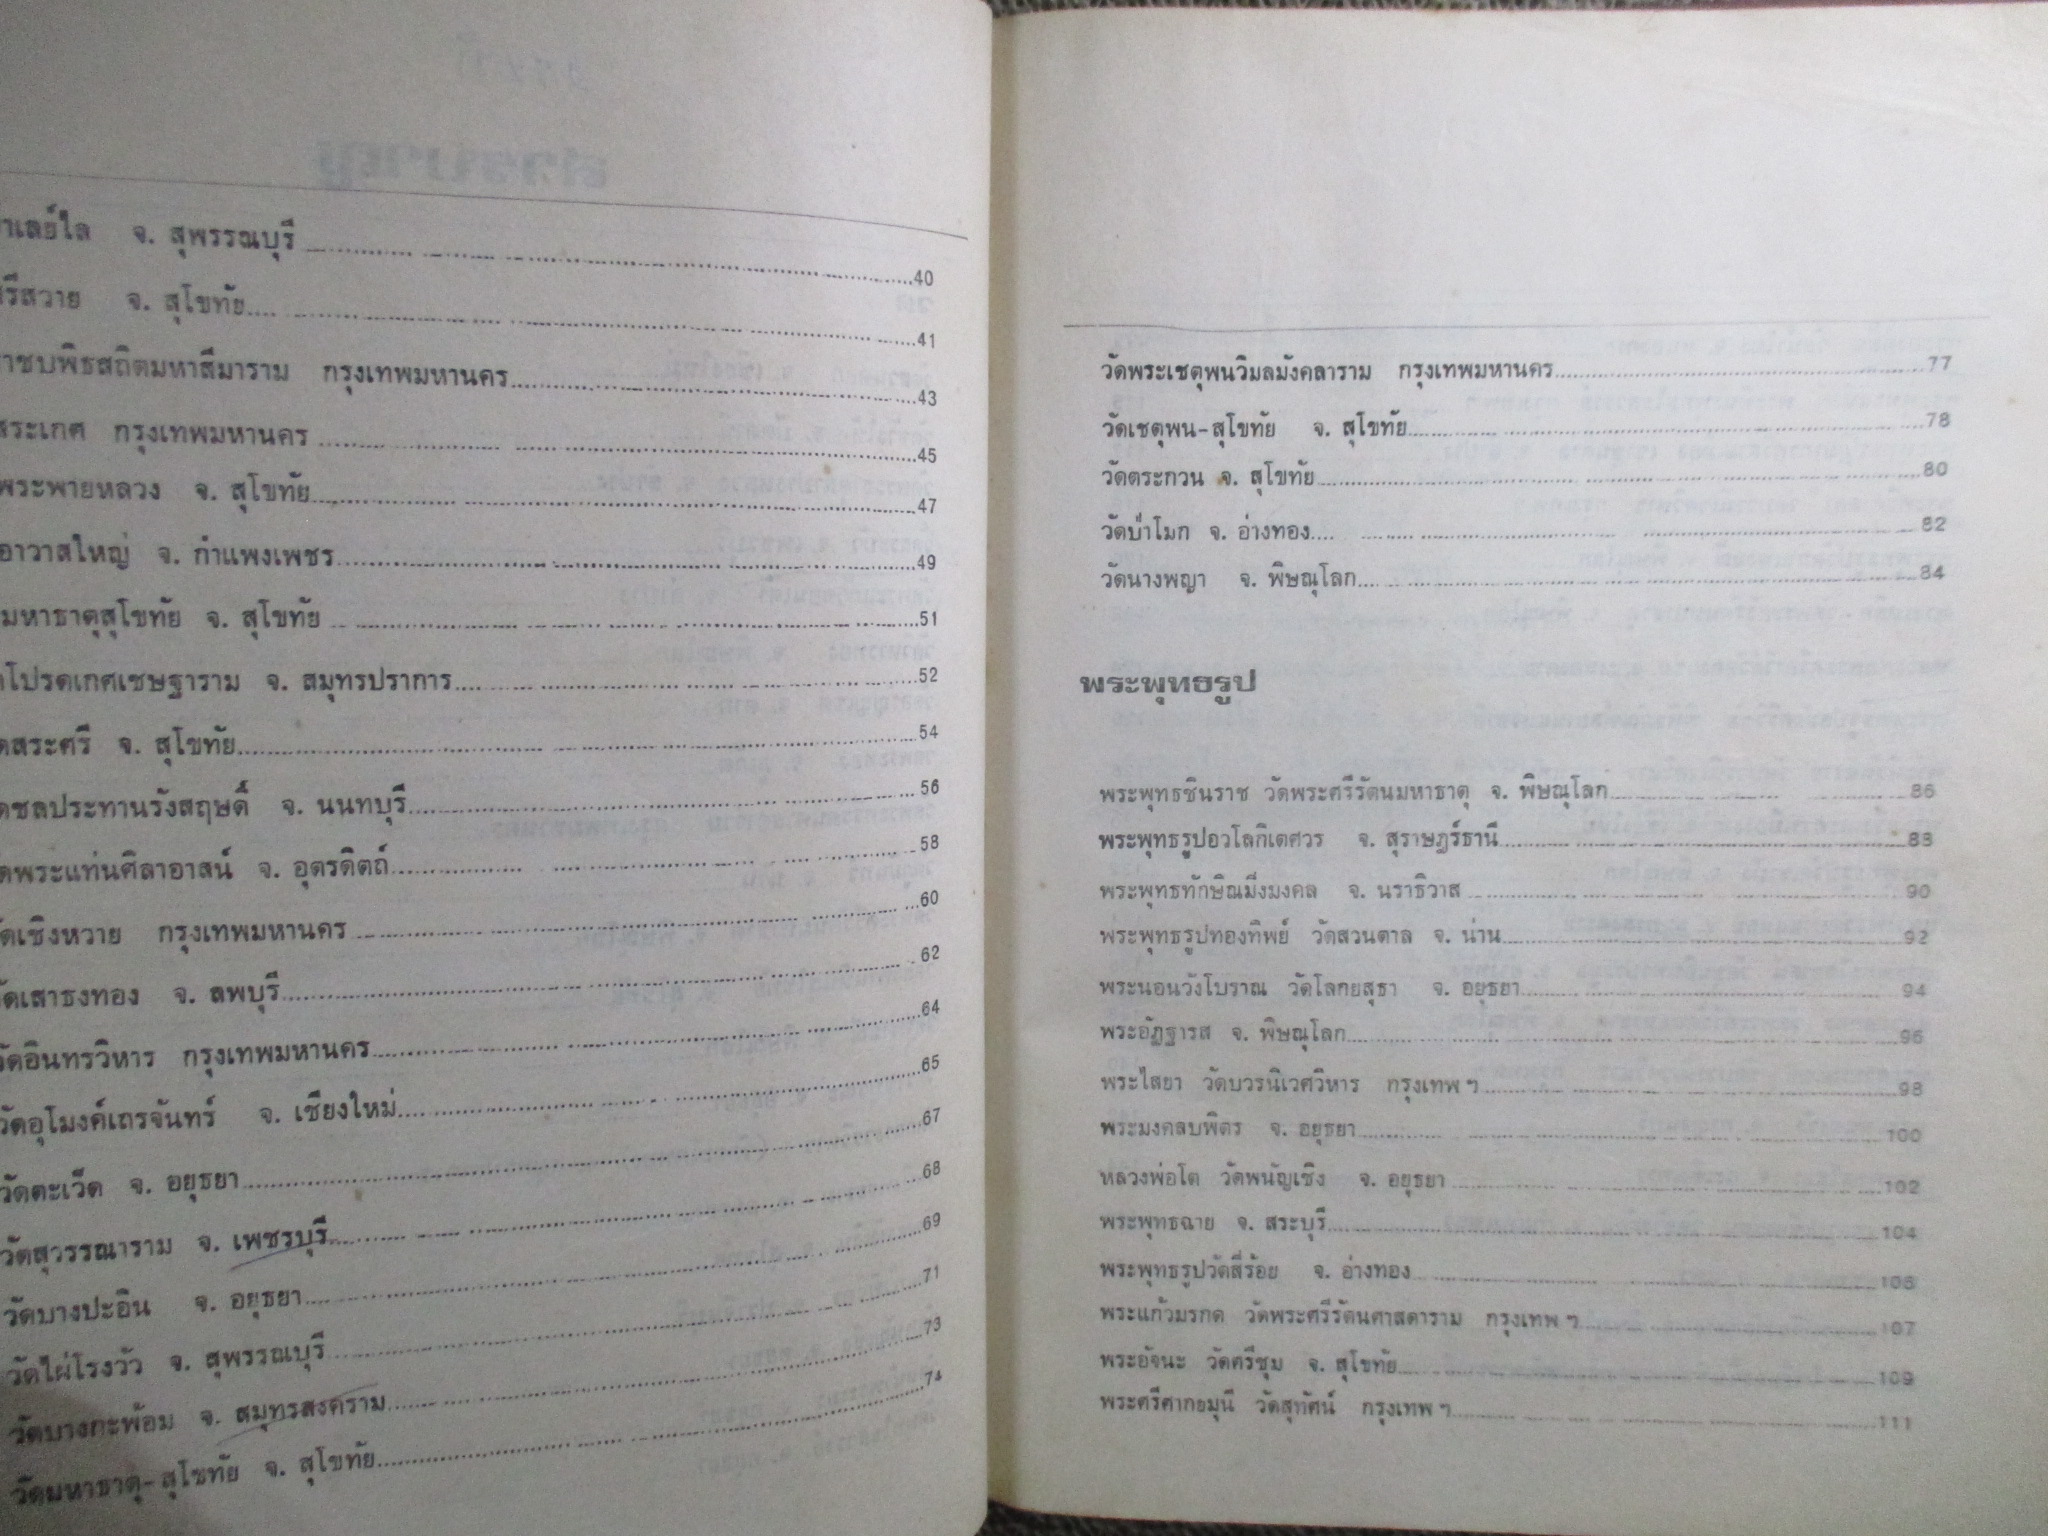 าเลย์ไล จ. สุพรรณบุรี 40
ศรีสวาย จ. สุโขทัย 41
ราชบพิธสถิตมหาสีมาราม กรุงเทพมหานคร 43
สระเกศ กรุงเทพมหานคร 45
พระพายหลวง จ. สุโขทัย 47
อาวาสใหญ่ จ. กำแพงเพชร 49
มหาธาตุสุโขทัย จ. สุโขทัย 51
โปรดเกศเชษฐาราม จ. สมุทรปราการ 52
ดสระศรี จ. สุโขทัย 54
ดชลประทานรังสฤษดิ์ จ. นนทบุรี 56
ดพระแท่นศิลาอาสน์ จ. อุตรดิตถ์ 58
ัดเชิงหวาย กรุงเทพมหานคร 60
วัดเสาธงทอง จ. ลพบุรี 62
วัดอินทรวิหาร กรุงเทพมหานคร 64
วัดอุโมงค์เถรจันทร์ จ. เชียงใหม่ 65
วัดตะเว็ด จ. อยุธยา 67
วัดสุวรรณาราม จ. เพชรบุรี 68
วัดบางปะอิน จ. อยุธยา 69
วัดไผ่โรงวัว จ. สุพรรณบุรี 71
วัดบางกะพ้อม จ. สมุทรสงคราม 73
วัดมหาธาตุ-สุโขทัย จ. สุโขทัย 74
วัดพระเชตุพนวิมลมังคลาราม กรุงเทพมหานคร 77
วัดเชตุพน-สุโขทัย จ. สุโขทัย 78
วัดตระกวน จ. สุโขทัย 80
วัดป่าโมก จ. อ่างทอง 82
วัดนางพญา จ. พิษณุโลก 84
พระพุทธรูป
พระพุทธชินราช วัดพระศรีรัตนมหาธาตุ จ. พิษณุโลก 86
พระพุทธรูปอวโลกิเตศวร จ. สุราษฎร์ธานี 88
พระพุทธทักษิณมิ่งมงคล จ. นราธิวาส 90
พระพุทธรูปทองทิพย์ วัดสวนตาล จ. น่าน 92
พระนอนวังโบราณ วัดโลกยสุธา จ. อยุธยา 94
พระอัฏฐารส จ. พิษณุโลก 96
พระไสยา วัดบวรนิเวศวิหาร กรุงเทพฯ 98
พระมงคลบพิตร จ. อยุธยา 100
หลวงพ่อโต วัดพนัญเชิง จ. อยุธยา 102
พระพุทธฉาย จ. สระบุรี 104
พระพุทธรูปวัดสี่ร้อย จ. อ่างทอง 106
พระแก้วมรกต วัดพระศรีรัตนศาสดาราม กรุงเทพฯ 107
พระอัจนะ วัดศรีชุม จ. สุโขทัย 109
พระศรีศากยมุนี วัดสุทัศน์ กรุงเทพฯ 111